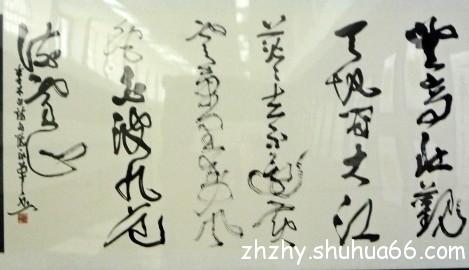 登高壮觀
天地間大江
茫茫去不還黃
雲萬里動風
色白波九道
流雪山
zhzhy.shuhua66.com